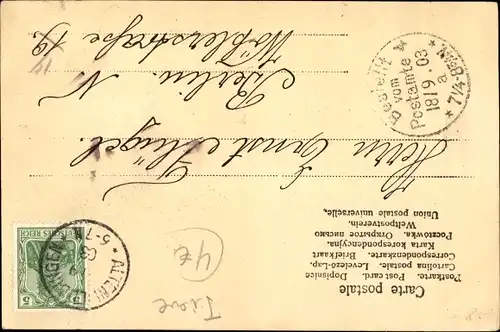 Carte postale
Postkarte. Post card. Dopisnice
Cartolina postale. Levelező-Lap.
Correspondenzkarte. Briefkaart
Karta korespondencyjna.
Pocztowka. Открытое письмо
Weltpostverein.
Union postale universelle,
Herrn Ernst
Berlin. N
Wöhlertstraße 19.
Bestellt
vom
Postamte 4
18/9.03
7¼-8¼N.
DEUTSCHES REICH
5
5
03
5-
4z
Tiere